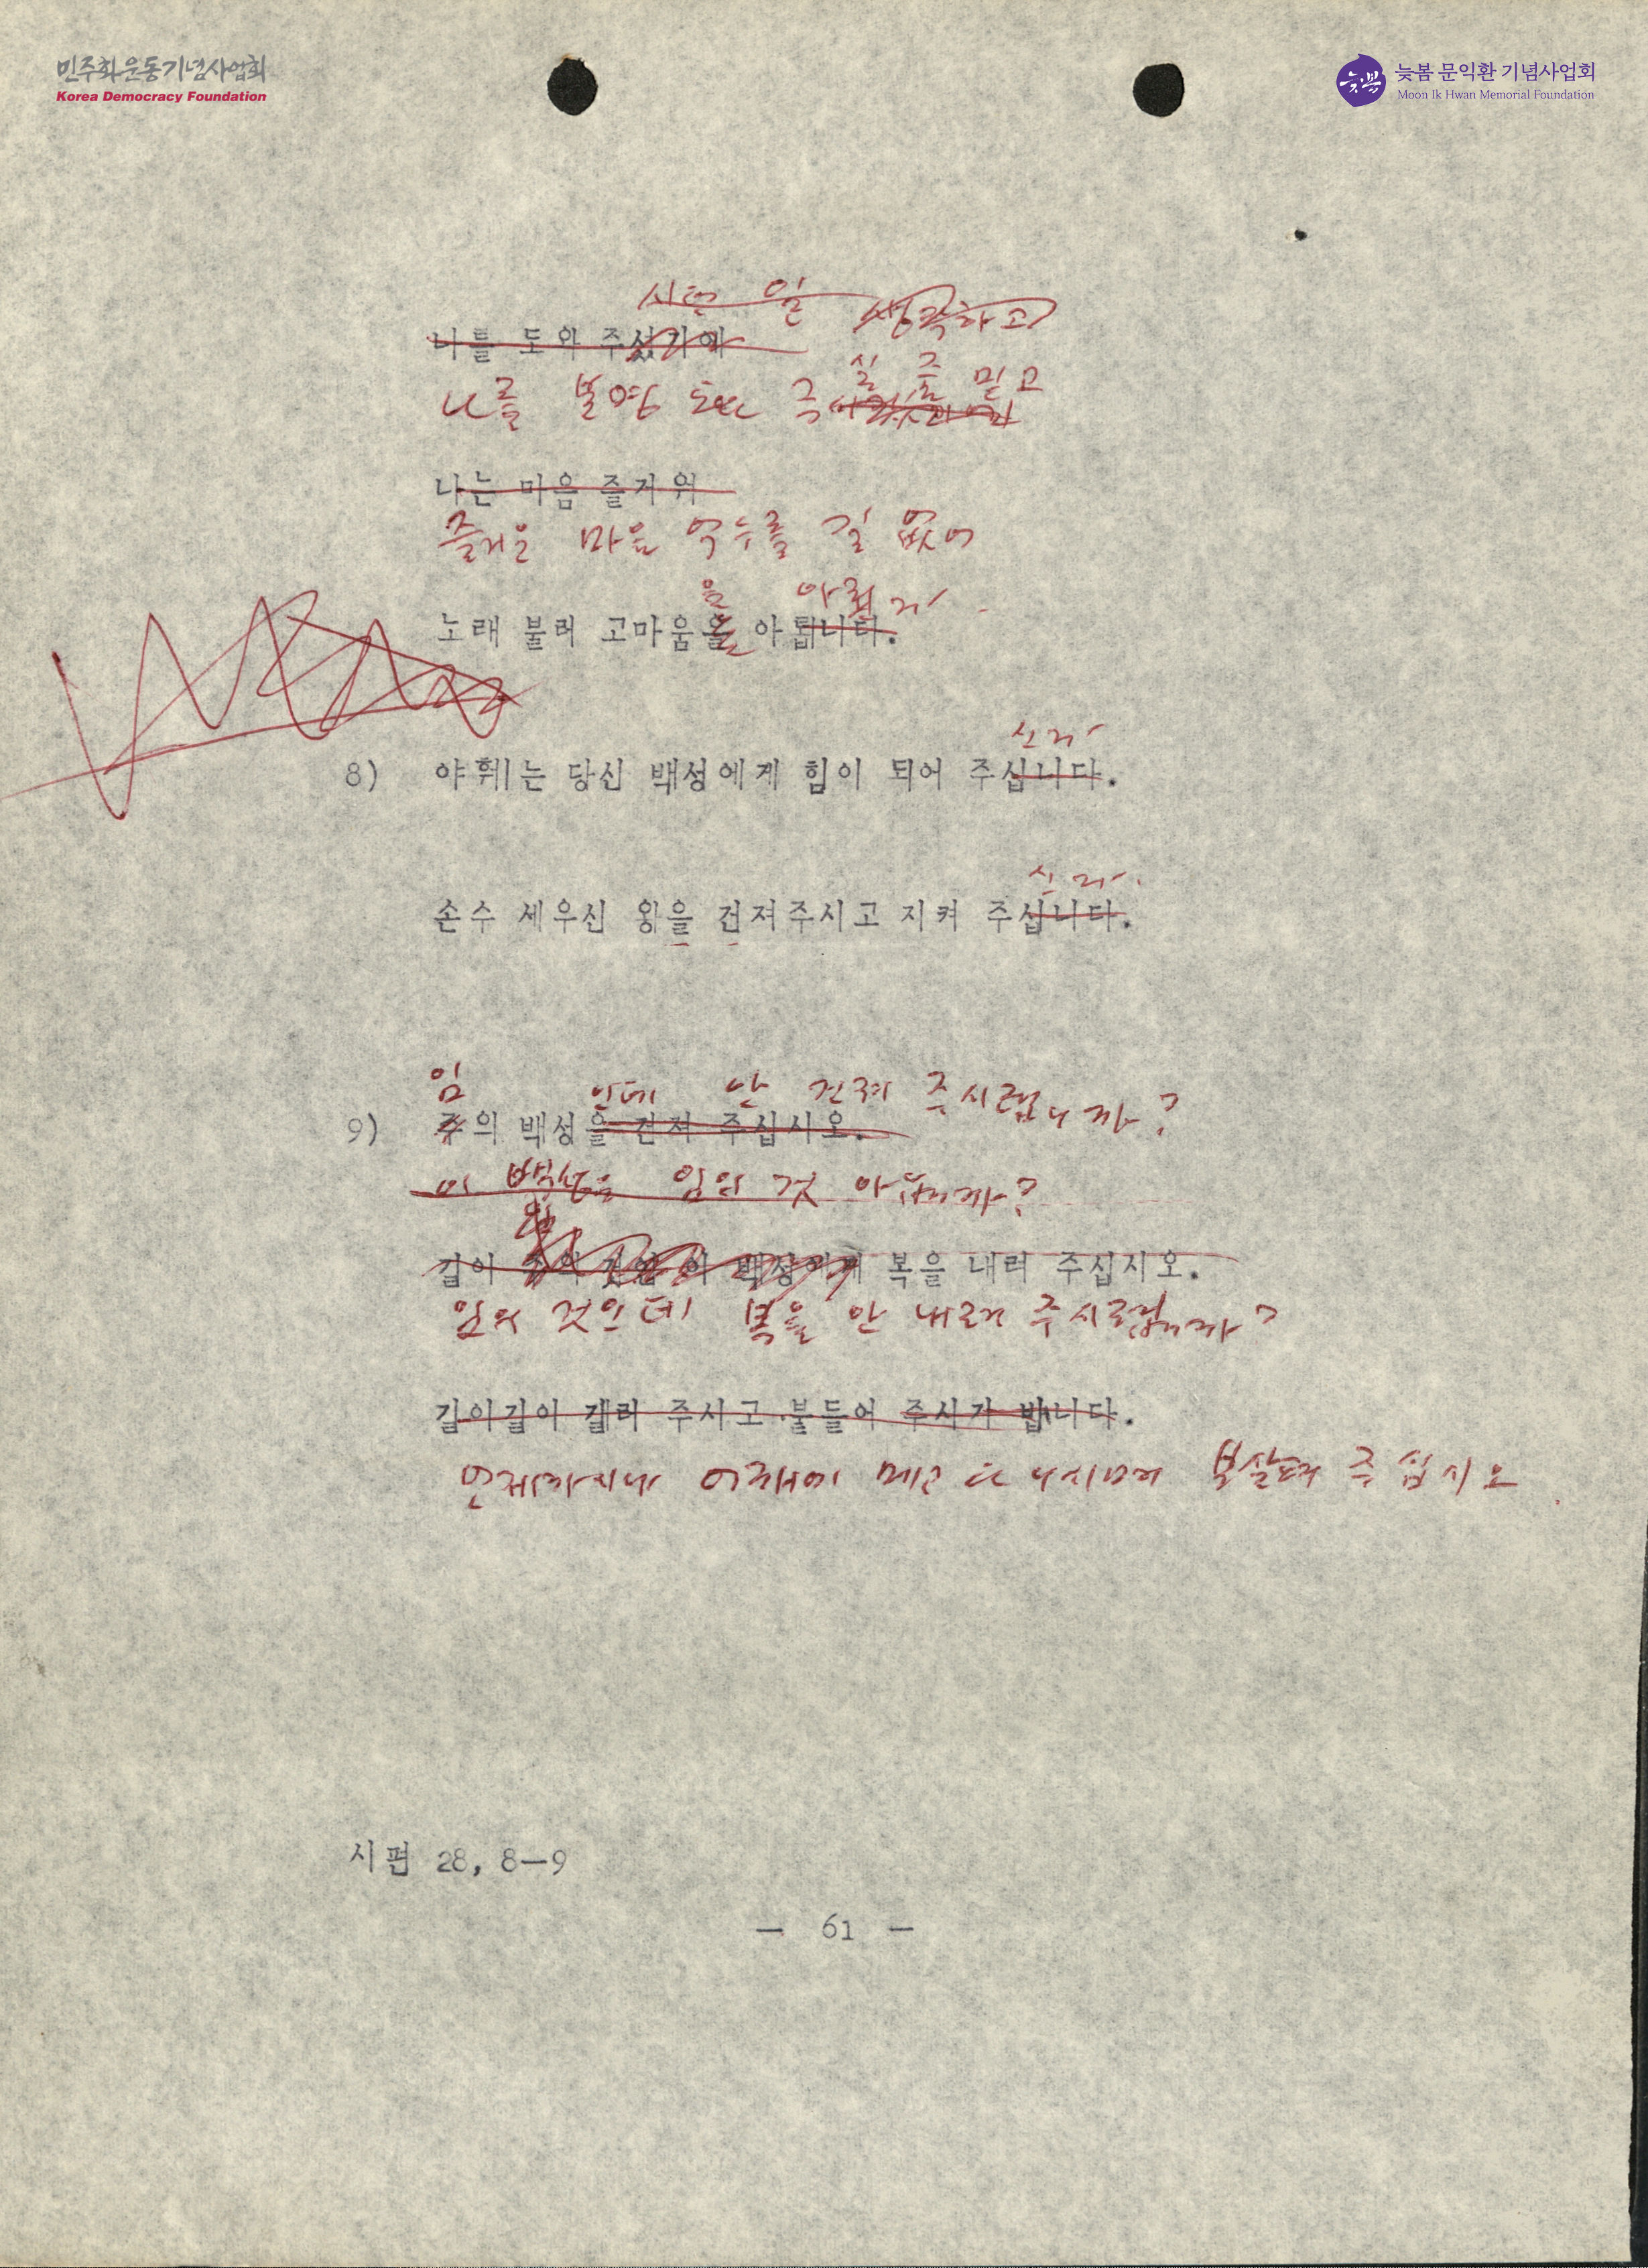 민주화운동기념사업회
Korea Democracy Foundation
늦봄
늦봄 문익환 기념사업회
Moon Ik Hwan Memorial Foundation
시던 일 생각하고
나를 도와 주셨기에
실 줄 믿고
나를 분명 도와
나는 마음 즐거워
즐거운 마음 억누를 길 없어
을 아뢸 거
노래 불러 고마움을 아룁니다.
신 거
8) 야훼는 당신 백성에게 힘이 되어 주십니다.
신 거
손수 세우신 왕을 건져주시고 지켜 주십니다.
임 인데 안 건져 주시렵니까?
9) 주의 백성을 건져 주십시오.
이 백성은 임의 것 아닙니까?
임
길이 주의 것인 이 백성에게 복을 내려 주십시오.
임의 것인데 복을 안 내려 주시렵니까?
길이길이 길러 주시고 붙들어 주시기 빕니다.
언제까지나 보살펴 주십시오.
시편 28, 8—9
— 61 —